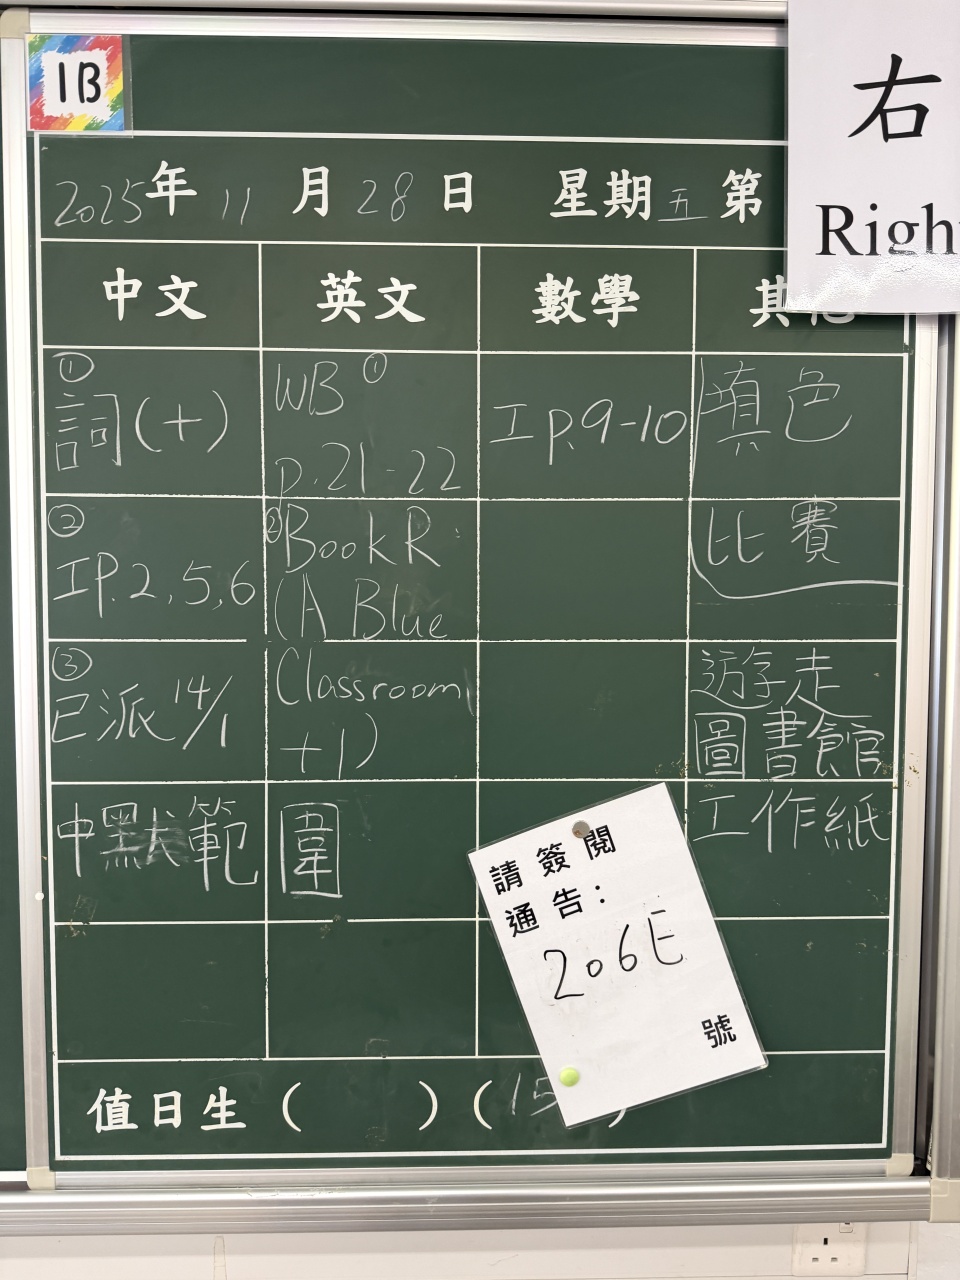 1B
右
Right
2025年 11 月 28 日 星期 五 第
中文 英文 數學 其他
① 詞(十)
② 工P.2,5,6
③ 已派14/1
中默範圍
WB ①
p.21-22
② Book R:
(A Blue
Classroom
+1)
工P.9-10
填色
比賽
遊走
圖書館
工作紙
請簽閱
通告:
206E
號
值日生 ( ) (15 )